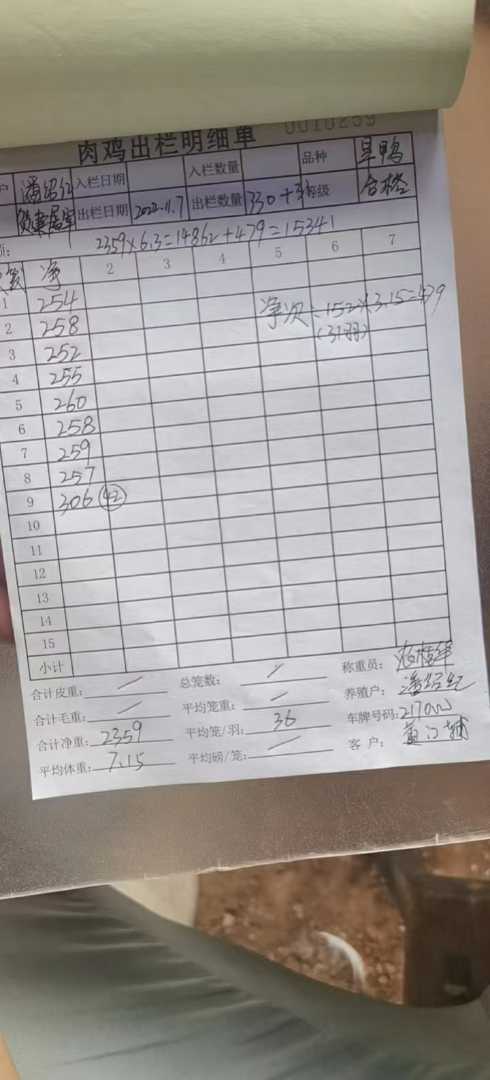 肉鸡出栏明细单 0010259
户 入栏日期 入栏数量 品种 旱鸭
出栏日期 2022.11.7 出栏数量 330+31 等级 合格
2359×6.3=14862+479=15341
净 2 3 4 5 6 7
1 254
净次:152×3.15=479
2 258
(31羽)
3 252
4 255
5 260
6 258
7 259
8 257
9 306 (42)
10
11
12
13
14
15
小计
合计皮重: 总笼数: 称重员:
合计毛重: 平均笼重: 养殖户: 潘绍红
合计净重: 2359 平均笼/羽: 36 车牌号码:
平均体重: 7.15 平均磅/笼: 客户: